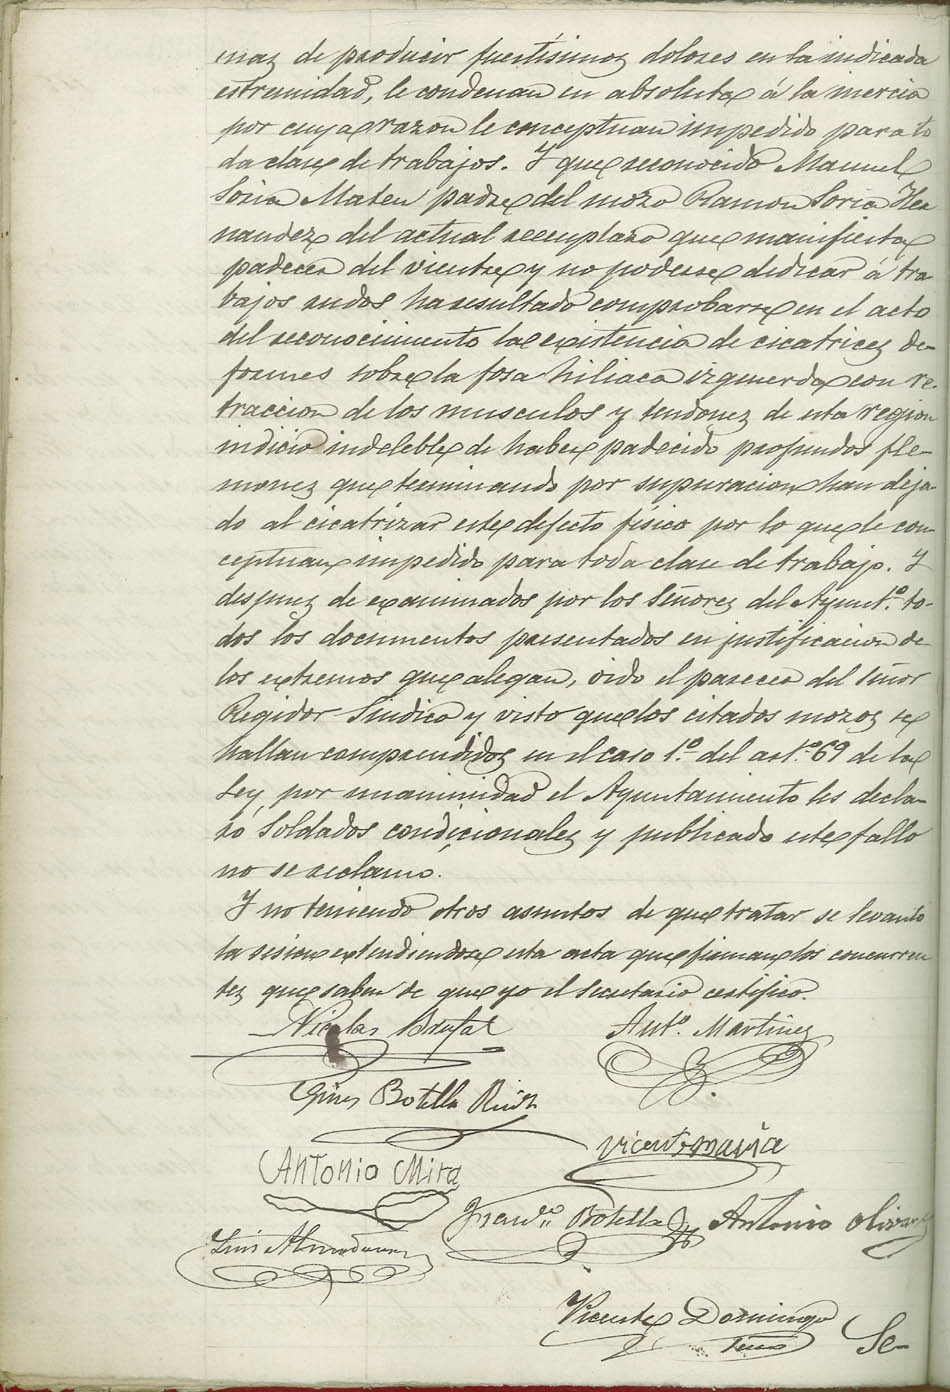 mas de producir fuertísimos dolores en la indicada
estremidad, le condenan en absoluta á la inercia
por cuya razon le conceptuan impedido para to
da clase de trabajos. Y que reconocido Manuel
Soria Mateu padre del mozo Ramon Soria Her
nandez del actual reemplazo que manifiesta
padecer del vientre y no poderse dedicar á tra-
bajos rudos ha resultado comprobarse en el acto
del reconocimiento la existencia de cicatrices de-
formes sobre la fosa hiliaca izquierda con re-
traccion de los musculos y tendones de esta region
indicio indeleble de haber padecido profundos fle-
mones que terminando por supuracion han deja-
do al cicatrizar este defecto físico por lo que le con
ceptuan impedido para toda clase de trabajo. Y
despues de examinados por los Señores del Ayuntº. to-
dos los documentos presentados en justificacion de
los extremos que alegan, oido el parecer del Señor
Regidor Sindico y visto que los citados mozos se
hallan comprendidos en el caso 1º. del artº. 69 de la
Ley, por unanimidad el Ayuntamiento les decla-
ró Soldados condicionales y publicado este fallo
no se reclamo.
Y no teniendo otros asuntos de que tratar se levantó
la sesion extendiendose esta acta que firman los concurren
tes que saben de que yo el Secretario certifico.
Nicolas Brufal Antº. Martinez
Gines Botella
Vicente
Antonio Mira
Franco. Botella Antonio Olivares
Luis Almodovar
Vicente Domingo
Se-